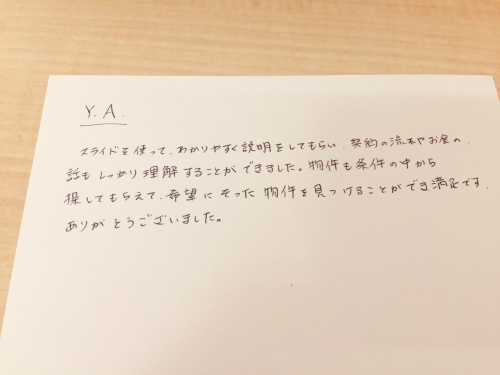 Y.A.
スライドを使って、わかりやすく説明をしてもらい、契約の流れやお金の、
話もしっかり理解することができました。物件も条件の中から
探してもらえて、希望にそった物件を見つけることができ満足です。
ありがとうございました。